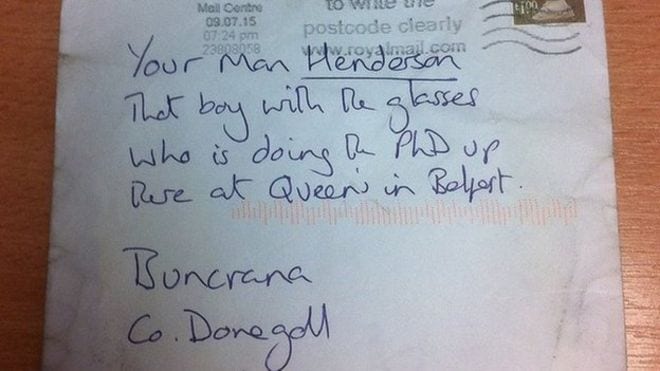 Mail Centre
09.07.15
07:24 pm
23808058
to write the
postcode clearly
www.royalmail.com
Your Man Henderson
That boy with the glasses
who is doing the PhD up
there at Queen's in Belfast.
Buncrana
Co. Donegall